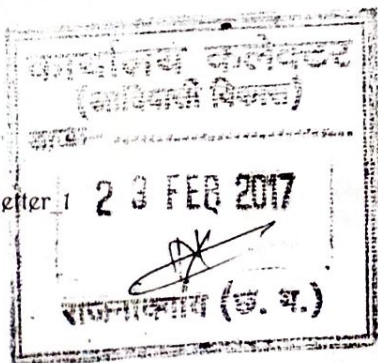 कार्यालय कलेक्टर
(आदिवासी विकास)
etter 1 23 FEB 2017
राजनांदगांव (छ. ग.)